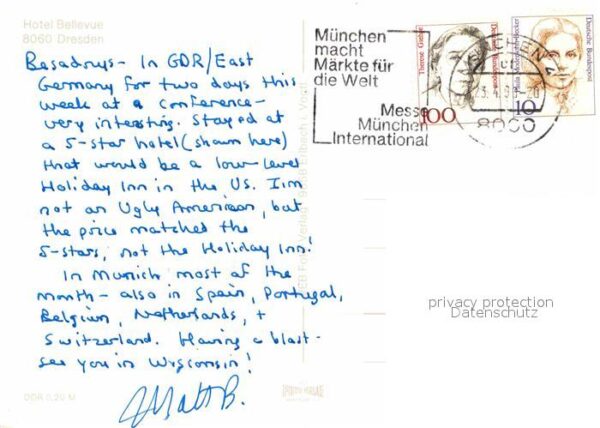 Hotel Bellevue
8060 Dresden
Besadnys- In GDR/East
Germany for two days this
week at a conference-
very interesting. Stayed at
a 5-star hotel (shown here)
that would be a low-level
Holiday Inn in the US. I'm
not an Ugly American, but
the price matched the
5-stars, not the Holiday Inn!
In Munich most of the
month- also in Spain, Portugal,
Belgium, Netherlands, +
Switzerland. Having a blast-
see you in Wisconsin!
Matt B.
DDR 0,20 M
München
macht
Märkte für
die Welt
Messe
München
International
100
Deutsche Bundespost
10
MÜNCHEN
8000
privacy protection
Datenschutz